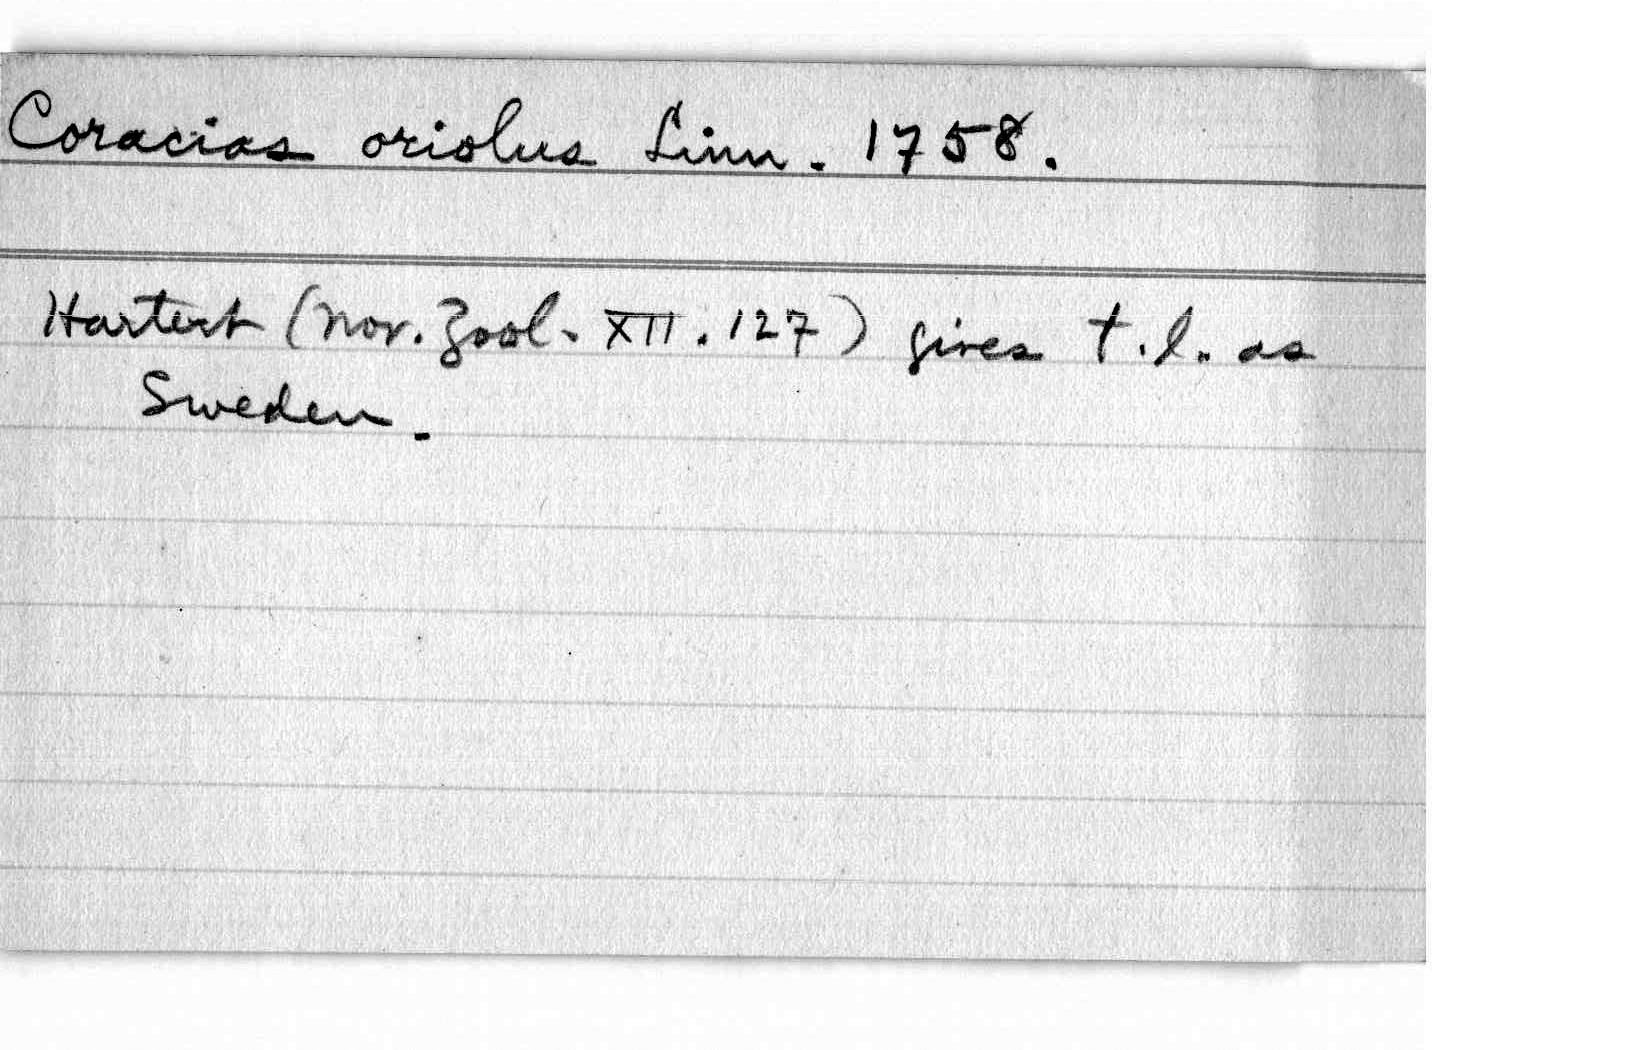 Coracias oriolus Linn. 1758.
Hartert (Nov. Zool. XII. 127) gives t.l. as
Sweden.